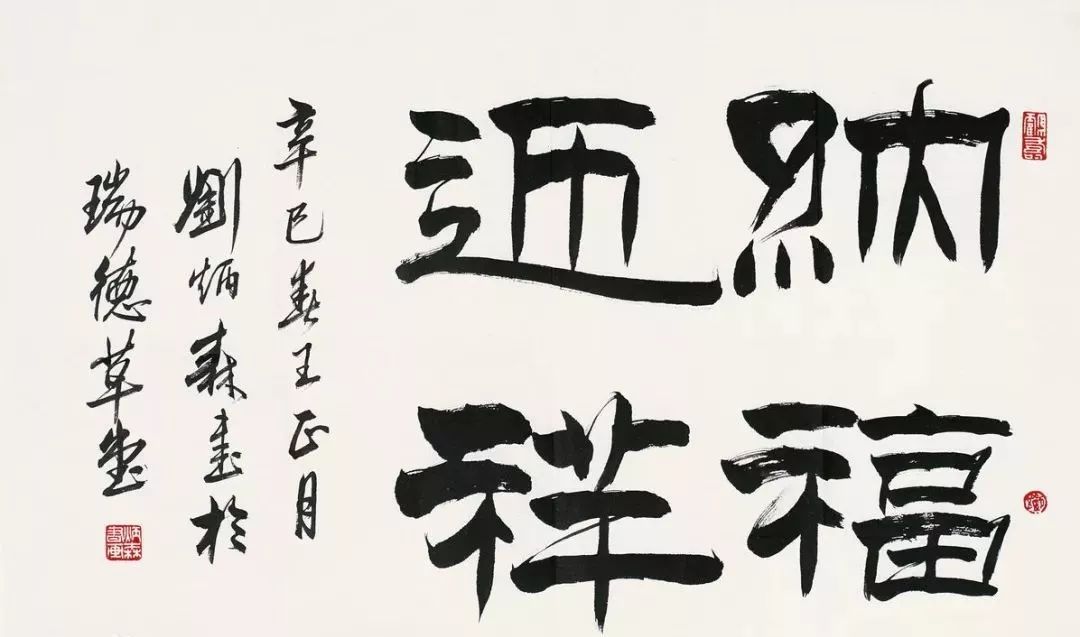 納福
迎祥
辛巳春王正月
劉炳森書於
瑞德草堂